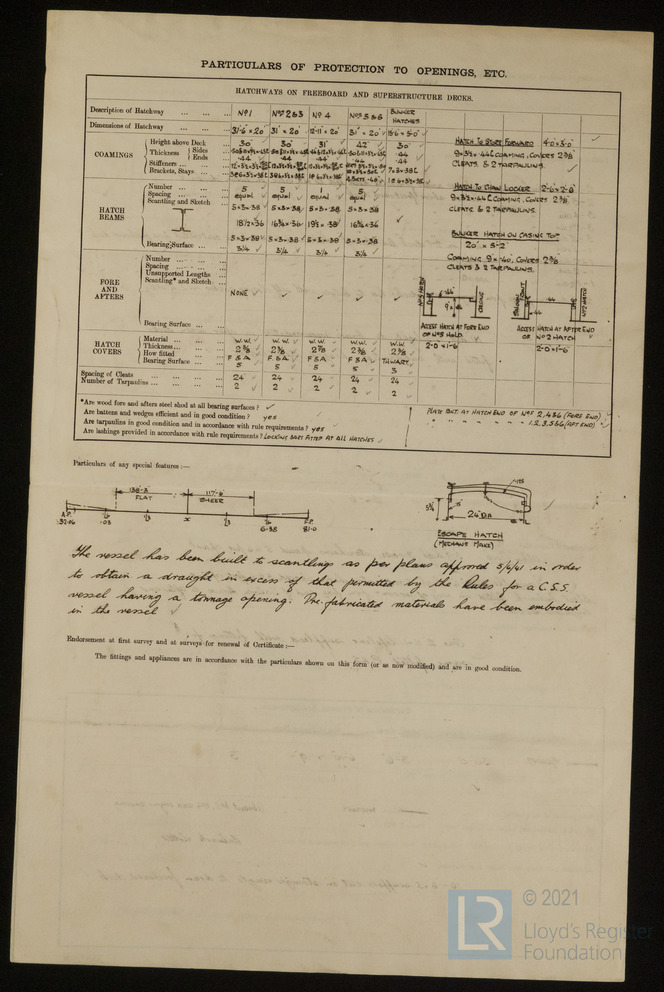 PARTICULARS OF PROTECTION TO OPENINGS, ETC.
HATCHWAYS ON FREEBOARD AND SUPERSTRUCTURE DECKS.
Description of Hatchway ... ... ... Nº1 Nºs 2&3 Nº 4 Nºs 5&6 BUNKER HATCHES
Dimensions of Hatchway ... ... ... 31'-6 × 20' 31' × 20' 12'-11" × 20' 31' × 20'
COAMINGS
Height above Deck 30" 30" 31" 42" 30"
Thickness Sides ...
Ends ... .44 .44 .44 .44 .44
Stiffeners ...
Brackets, Stays ...
HATCH BEAMS
Number ... 5 5 1 5
Spacing ... equal equal equal
Scantling and Sketch
5×3×.38 5×3×.38 5×3×.38 5×3×.38
18½×36 16¾×36 19½×.38 16¾×36
5×3×.38 5×3×.38 5×3×.38 5×3×.38
Bearing Surface ... 3¼ 3¼ 3¼ 3¼
FORE AND AFTERS
Number ...
Spacing ...
Unsupported Lengths
Scantling* and Sketch NONE
Bearing Surface ...
HATCH COVERS
Material ... W.W. W.W. W.W. W.W. W.W.
Thickness ... 2⅜ 2⅜ 2⅞ 2⅜ 2⅜
How fitted ... F&A F&A F&A F&A THWART.
Bearing Surface ... 5 5 5 5 3
Spacing of Cleats ... 24 24 24 24 24
Number of Tarpaulins ... 2 2 2 2 2
HATCH TO STORE FORWARD 4'-0×3'-0"
9×3½×.44 L COAMING, COVERS 2⅜
CLEATS & 2 TARPAULINS.
HATCH TO CHAIN LOCKER 2'-6×2'-8"
9×3½×.44 L COAMING, COVERS 2⅜
CLEATS & 2 TARPAULINS.
BUNKER HATCH ON CASING TOP
20' × 5'-2"
COAMING 9"×.40, COVERS 2⅜
CLEATS & 2 TARPAULINS.
.44
CASING
ACCESS HATCH AT FORE END
OF Nº3 HOLD
2'-0×1'-6
Nº2 HATCH
.44
ACCESS HATCH AT AFTER END
OF Nº2 HATCH
2'-0×1'-6
*Are wood fore and afters steel shod at all bearing surfaces?
Are battens and wedges efficient and in good condition? yes
Are tarpaulins in good condition and in accordance with rule requirements? yes
Are lashings provided in accordance with rule requirements? LOCKING BARS FITTED AT ALL HATCHES
PLATE BKT. AT HATCH END OF Nºs 2,4&6 (FORE END)
" " " " " " 1,2,3,5&6 (AFT END)
Particulars of any special features:—
138'-3 FLAT
117'-6" SHEER
A.P. 32.06
.03
⅓
x
⅓
6.38
F.P. 81.0
24" DIA
ESCAPE HATCH
(MECHANS MAKE)
The vessel has been built to scantlings as per plans approved 5/6/41 in order
to obtain a draught in excess of that permitted by the Rules for a C.S.S.
vessel having a tonnage opening. Pre-fabricated materials have been embodied
in the vessel
Endorsement at first survey and at surveys for renewal of Certificate:—
The fittings and appliances are in accordance with the particulars shown on this form (or as now modified) and are in good condition.
LR
© 2021
Lloyd's Register
Foundation